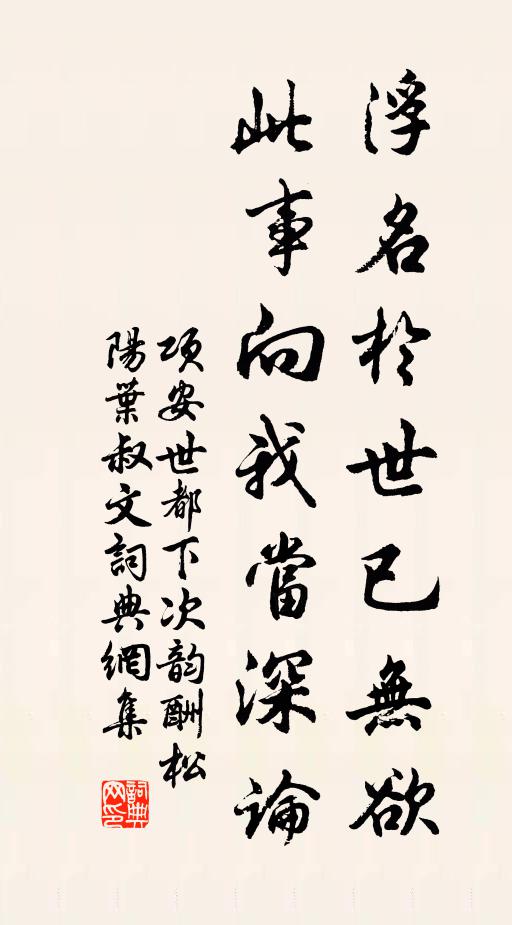 浮名於世已無欲
此事向我當深論
項安世都下次韵酬松
陽葉叔文詞典網集
詞典网印